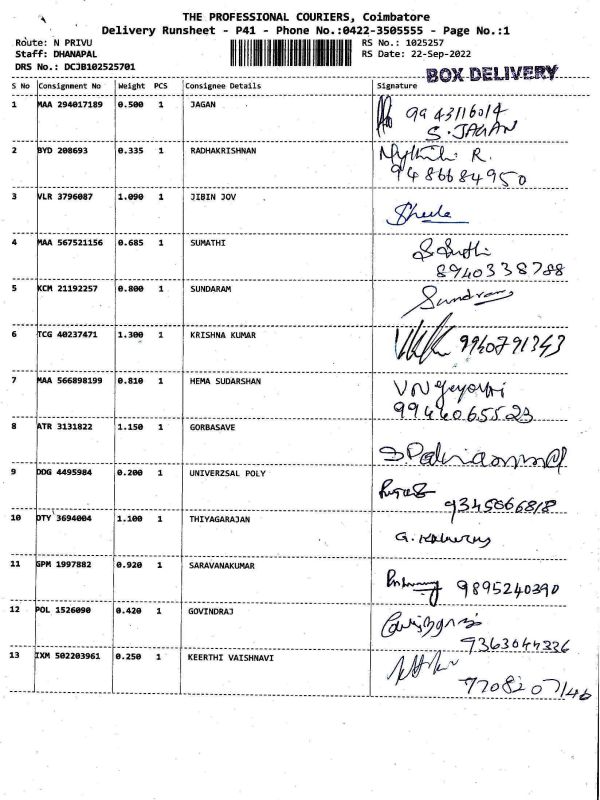 THE PROFESSIONAL COURIERS, Coimbatore
Delivery Runsheet - P41 - Phone No.:0422-3505555 - Page No.:1
Route: N PRIVU RS No.: 1025257
Staff: DHANAPAL RS Date: 22-Sep-2022
DRS No.: DCJB102525701
BOX DELIVERY
S No Consignment No Weight PCS Consignee Details Signature
1 MAA 294017189 0.500 1 JAGAN 9943116014
S. JAGAN
2 BYD 208693 0.335 1 RADHAKRISHNAN R.
9486684950
3 VLR 3796087 1.090 1 JIBIN JOV Sheela
4 MAA 567521156 0.685 1 SUMATHI
8940338788
5 KCM 21192257 0.800 1 SUNDARAM Sundram
6 TCG 40237471 1.300 1 KRISHNA KUMAR 9940791343
7 MAA 566898199 0.810 1 HEMA SUDARSHAN
9944065523
8 ATR 3131822 1.150 1 GORBASAVE
9 DDG 4495984 0.200 1 UNIVERZSAL POLY
9345666818
10 DTY 3694004 1.100 1 THIYAGARAJAN G.
11 GPM 1997882 0.920 1 SARAVANAKUMAR 9895240390
12 POL 1526090 0.420 1 GOVINDRAJ
9363044336
13 IXM 502203961 0.250 1 KEERTHI VAISHNAVI
7708207146